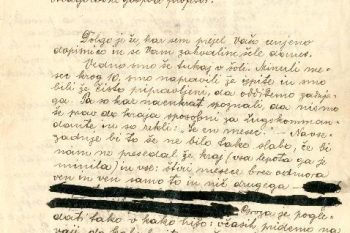 Dolgo je že, kar sem prejel Vašo cenjeno
dopisnico in se Vam zahvalim šele danes.
Vedno smo še tukaj v šoli. Minuli me-
sec krog 10. smo napravili že izpite in smo
bili že čisto pripravljeni, da oddidemo zadnje-
ga. Pa so kar naenkrat spoznali, da nismo
še prav do kraja sposobni za Zugskomman-
danta in so rekli: še en mesec. Navse-
zadnje bi to še ne bilo tako slabo, če bi
nam ne presedal že kraj (vsa lepota ga je
minila) in vse: štiri mesece brez odmora
ven in ven samo to in nič drugega
pogle-
dat tako v kako hišo: včasih pridemo na